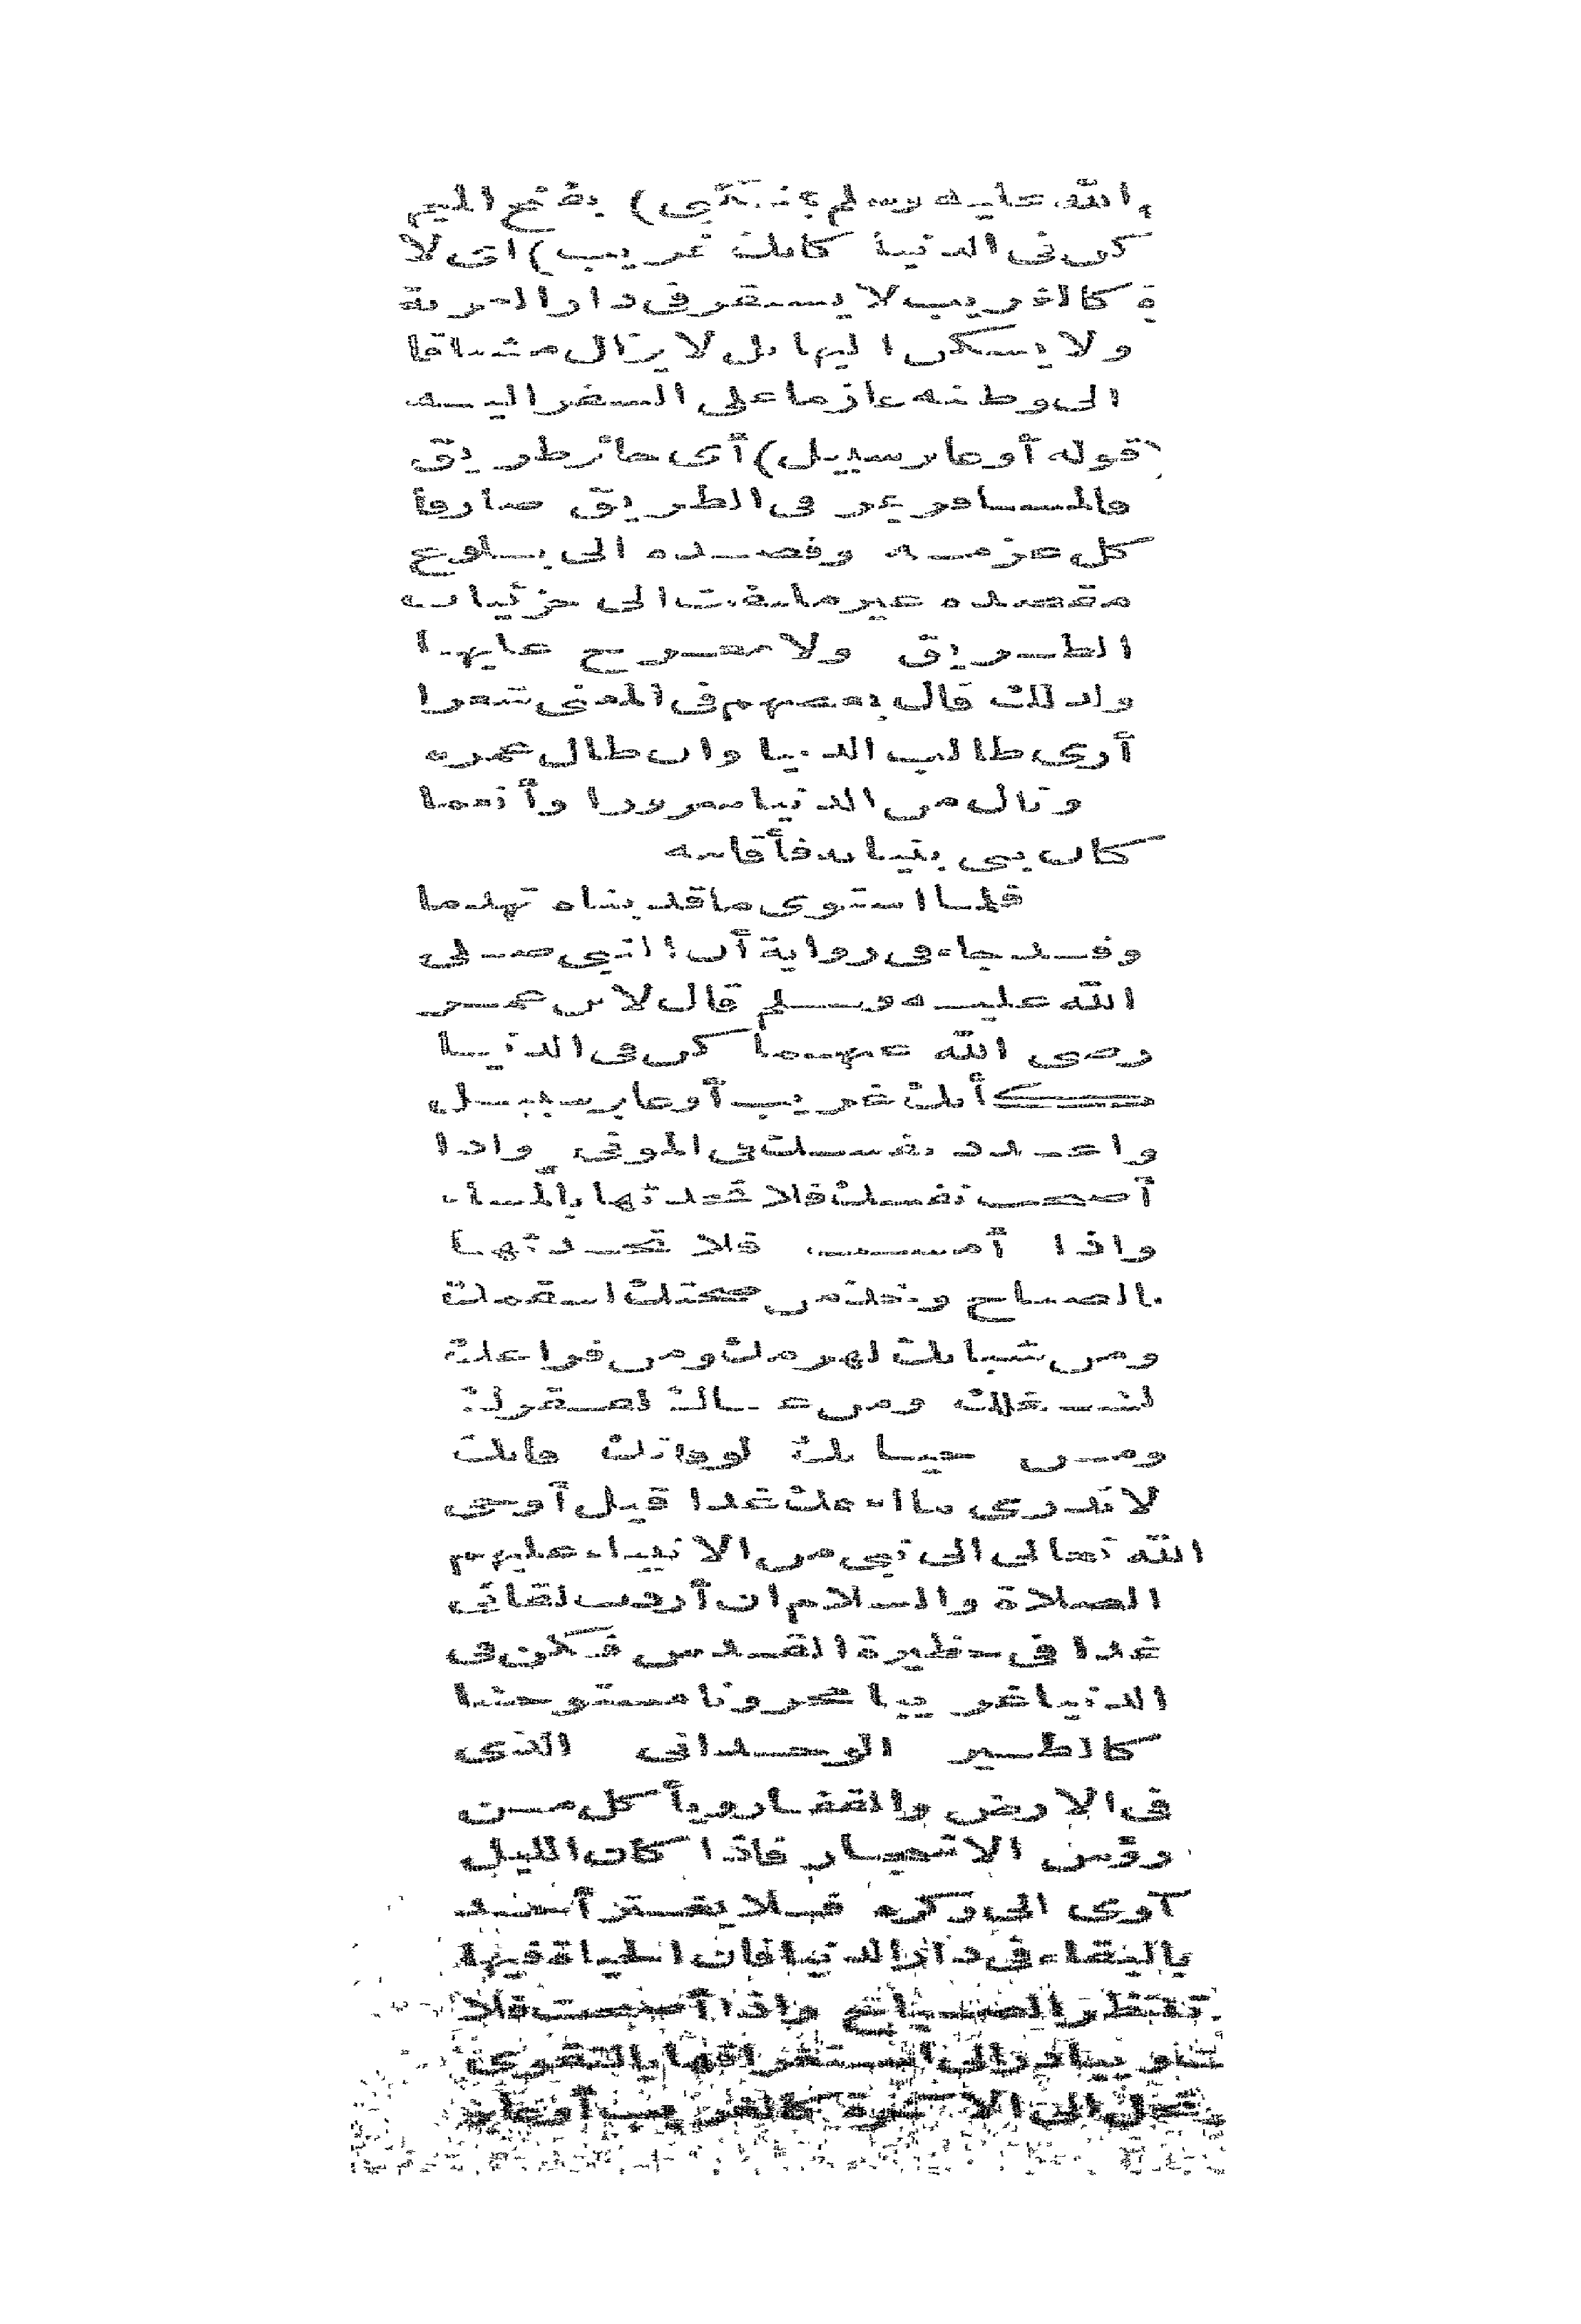 الله عليه وسلم بمنكبى) بفتح الميم
كن فى الدنيا كأنك غريب) اى لا
كالغريب لا يستقر فى دار الغربة
ولا يسكن اليها بل لا يزال مشتاقا
الى وطنه عازما على السفر اليه
(قوله أو عابر سبيل) أى جائز طريق
فالمسافر يمر فى الطريق صارفا
كل عزمه وقصده الى بلوغ
مقصده غير ملتفت الى جزئيات
الطريق ولا معرج عليها
ولذلك قال بعضهم فى المعنى شعرا
أرى طالب الدنيا وان طال عمره
ونال من الدنيا سرورا وأنعما
كبان بنى بنيانه فأقامه
فلما استوى ما قد بناه تهدما
وقد جاء فى رواية أن النبى صلى
الله عليه وسلم قال لابن عمر
رضى الله عنهما كن فى الدنيا
كأنك غريب أو عابر سبيل
واعدد نفسك فى الموتى واذا
أصبحت نفسك فلا تحدثها بالمساء
واذا أمست فلا تحدثها
بالصباح وخذ من صحتك لسقمك
ومن شبابك لهرمك ومن فراغك
لشغلك ومن غناك لفقرك
ومن حياتك لوفاتك فانك
لا تدرى ما اسمك غدا قيل أوحى
الله تعالى الى نبى من الانبياء عليهم
الصلاة والسلام ان أردت لقائى
غدا فى حظيرة القدس فكن فى
الدنيا غريبا محزونا مستوحشا
كالطير الوحدانى الذى
فى الارض والقفار ويأكل من
رؤس الاشجار فاذا كان الليل
آوى الى وكره فلا يغتر أحد
بالبقاء فى دار الدنيا فان الحياة فيها
تنتظر الصباح واذا أصبحت فلا
يبادر الى استغراقها بالتقوى
الى الآخرة كالغريب أو عابر